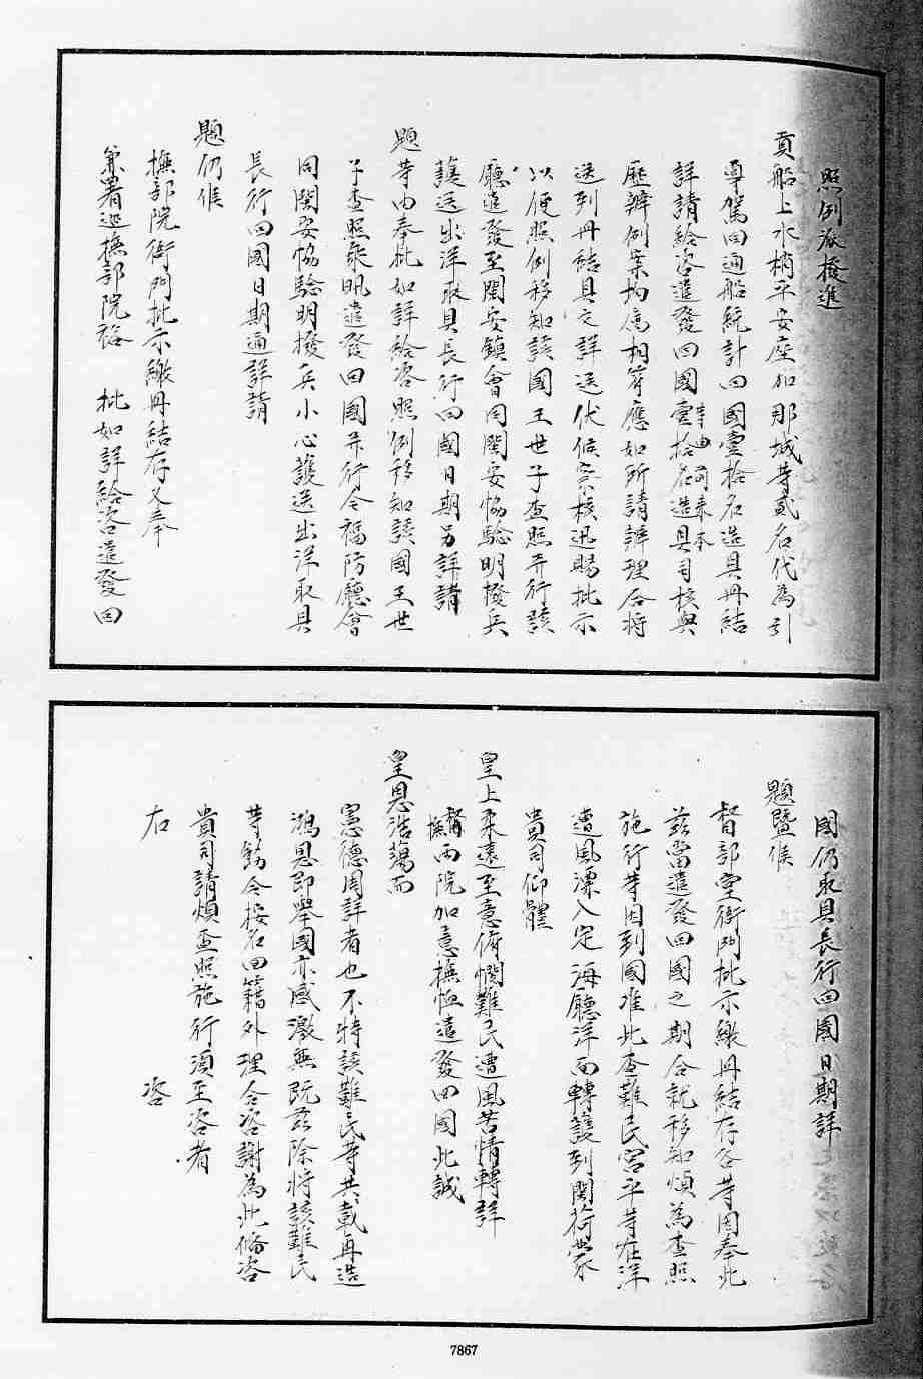 照例派撥進
貢船上水梢平安座加那城等貳名代為引
導駕回通船統計回國壹拾名造具冊結
詳請給咨遣發回國壹拾名造具司核與
歷辦例案均屬相符應如所請辦理合將
送到冊結具文詳送伏候察核迅賜批示
以便照例移知該國王世子查照并行該
廳遣發至閩安鎮會同閩安協驗明撥兵
護送出洋取具長行回國日期另詳請
題等由奉批如詳給咨照例移知該國王世
子查照來帆遣發回國并行令福防廳會
同閩安協驗明撥兵小心護送出洋取具
長行回國日期通詳請
題仍候
撫部院衙門批示繳冊結存又奉
兼署巡撫部院裕 批如詳給咨遣發回
國仍取具長行回國日期詳
題暨候
督部堂衙門批示繳冊結存各等因奉此
茲當遣發回國之期合就移知煩為查照
施行等因到國准此查難民宮平等在洋
遭風漂入定海廳洋面轉護到閩荷蒙
貴司仰體
皇上柔遠至意俯憫難民遭風苦情轉詳
督撫兩院加意撫恤遣發回國此誠
皇恩浩蕩而
憲德周詳者也不特該難民等共戴再造
鴻恩即舉國亦感激無既茲除將該難民
等飭令按名回籍外理合咨謝為此備咨
貴司請煩查照施行須至咨者
右 咨
7867